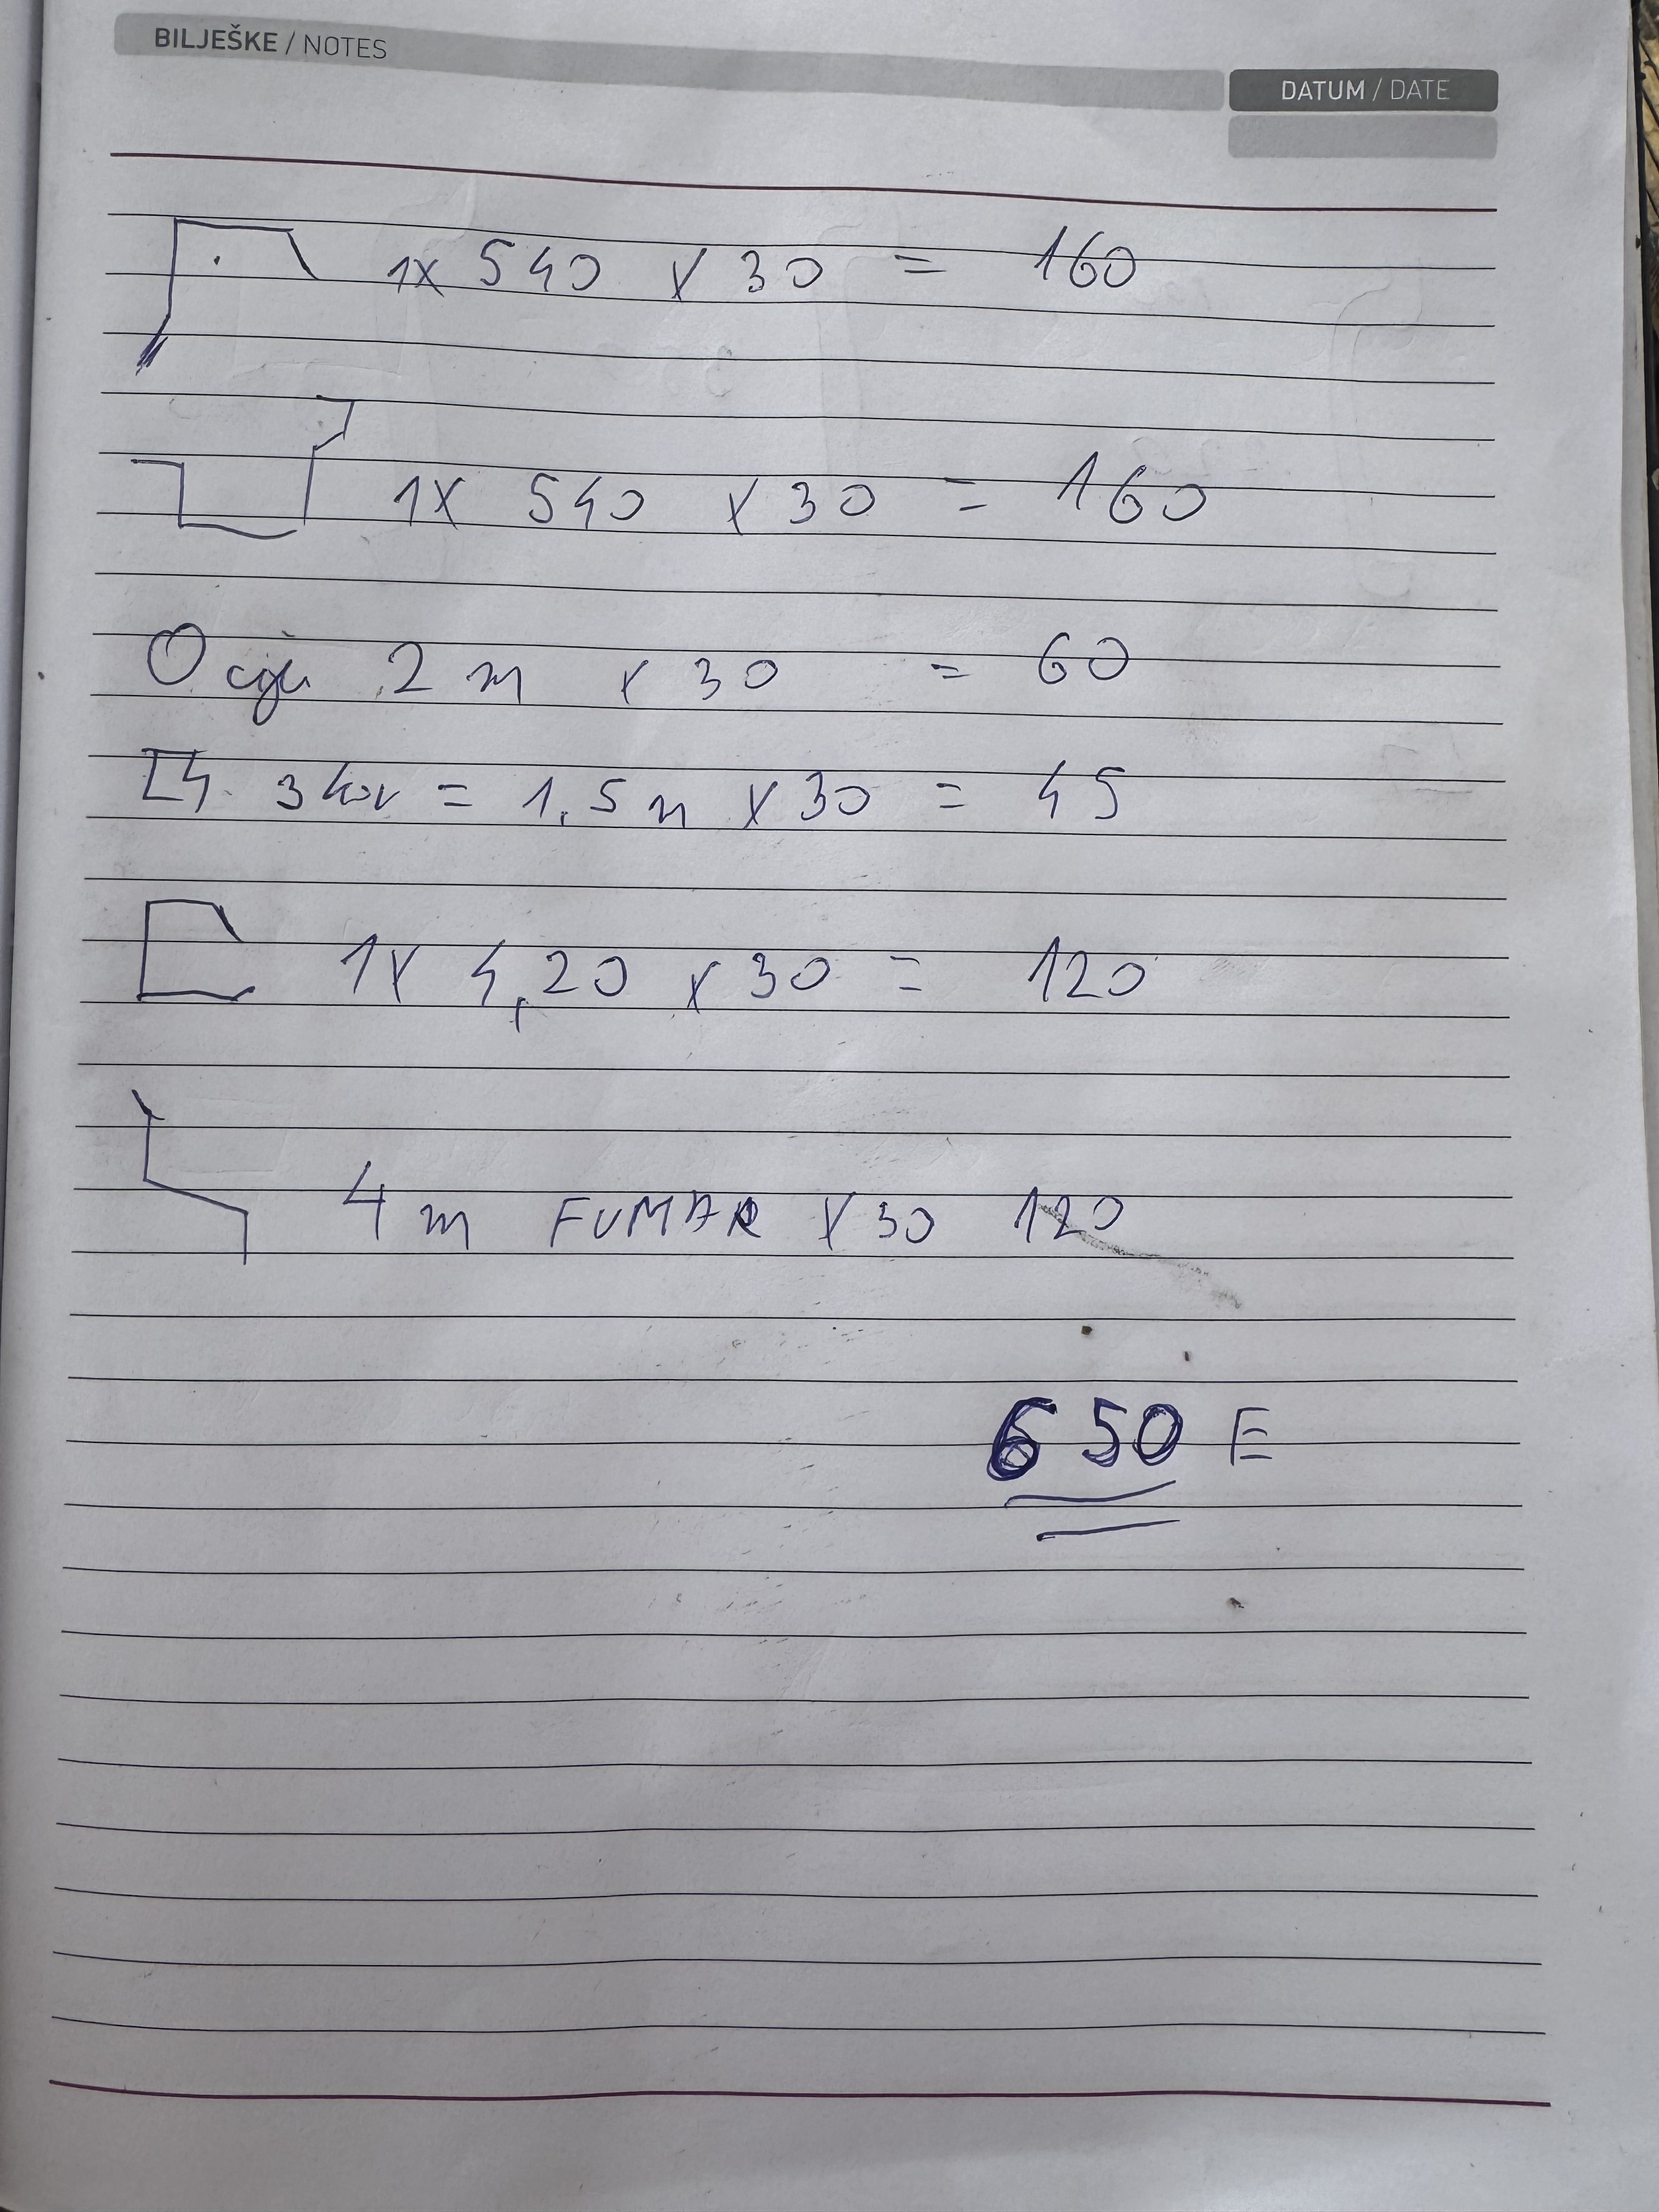 BILJEŠKE / NOTES
DATUM / DATE
1x 540 x 30 = 160
1x 540 x 30 = 160
2 m x 30 = 60
3 kov = 1,5 m x 30 = 45
1x 4,20 x 30 = 120
4 m FUMAR x 30 120
650 E